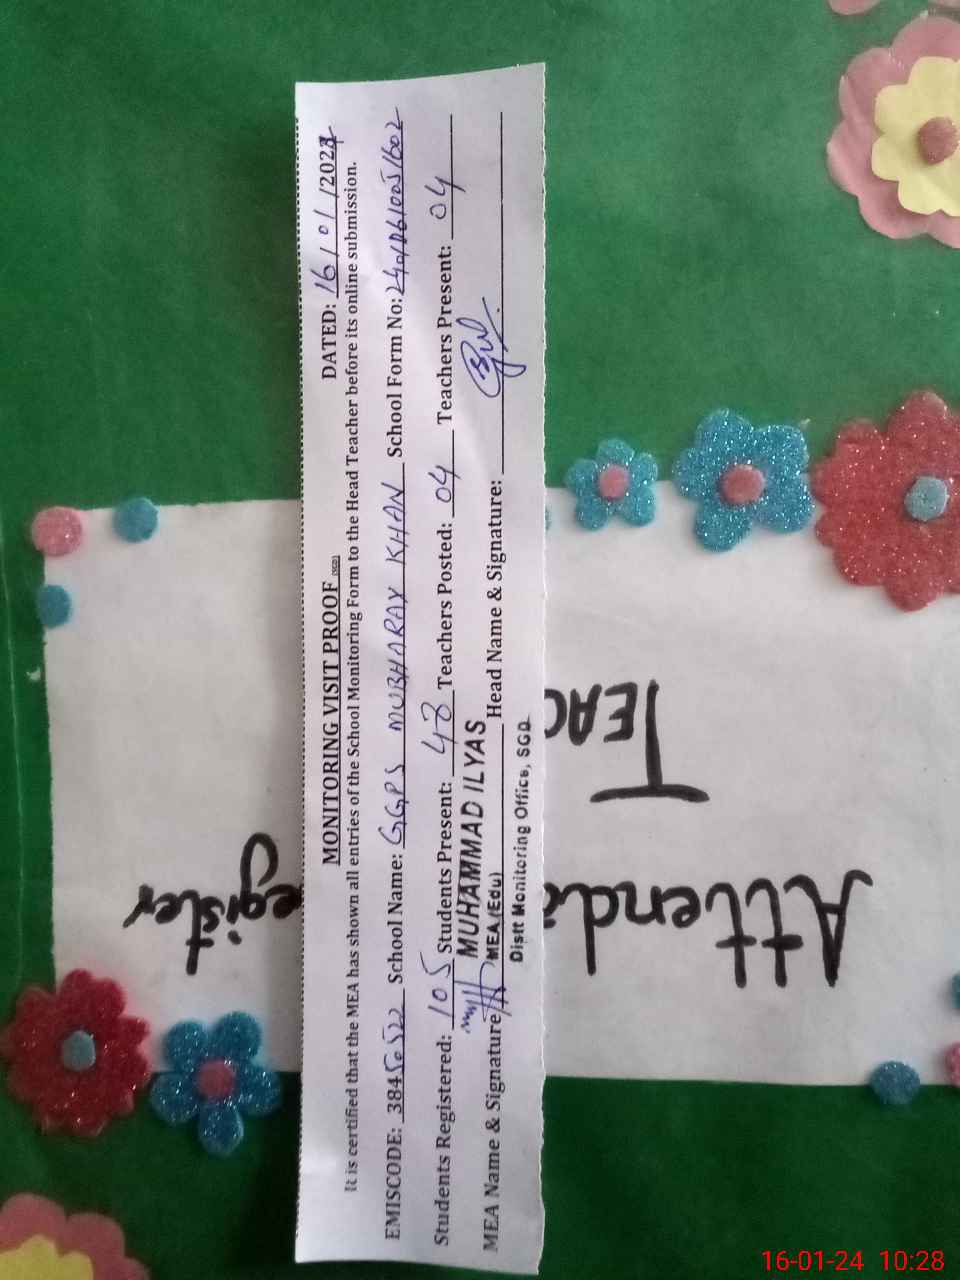 MONITORING VISIT PROOF (SGD)
DATED: 16/01/2024
It is certified that the MEA has shown all entries of the School Monitoring Form to the Head Teacher before its online submission.
EMISCODE: 3845 School Name: GGPS MUBHARAK KHAN School Form No:
Students Registered: 105 Students Present: 48 Teachers Posted: 04 Teachers Present: 04
MEA Name & Signature MUHAMMAD ILYAS Head Name & Signature:
MEA (Edu)
Distt Monitoring Office, SGD.
Attenda
TEAC
egister
16-01-24 10:28